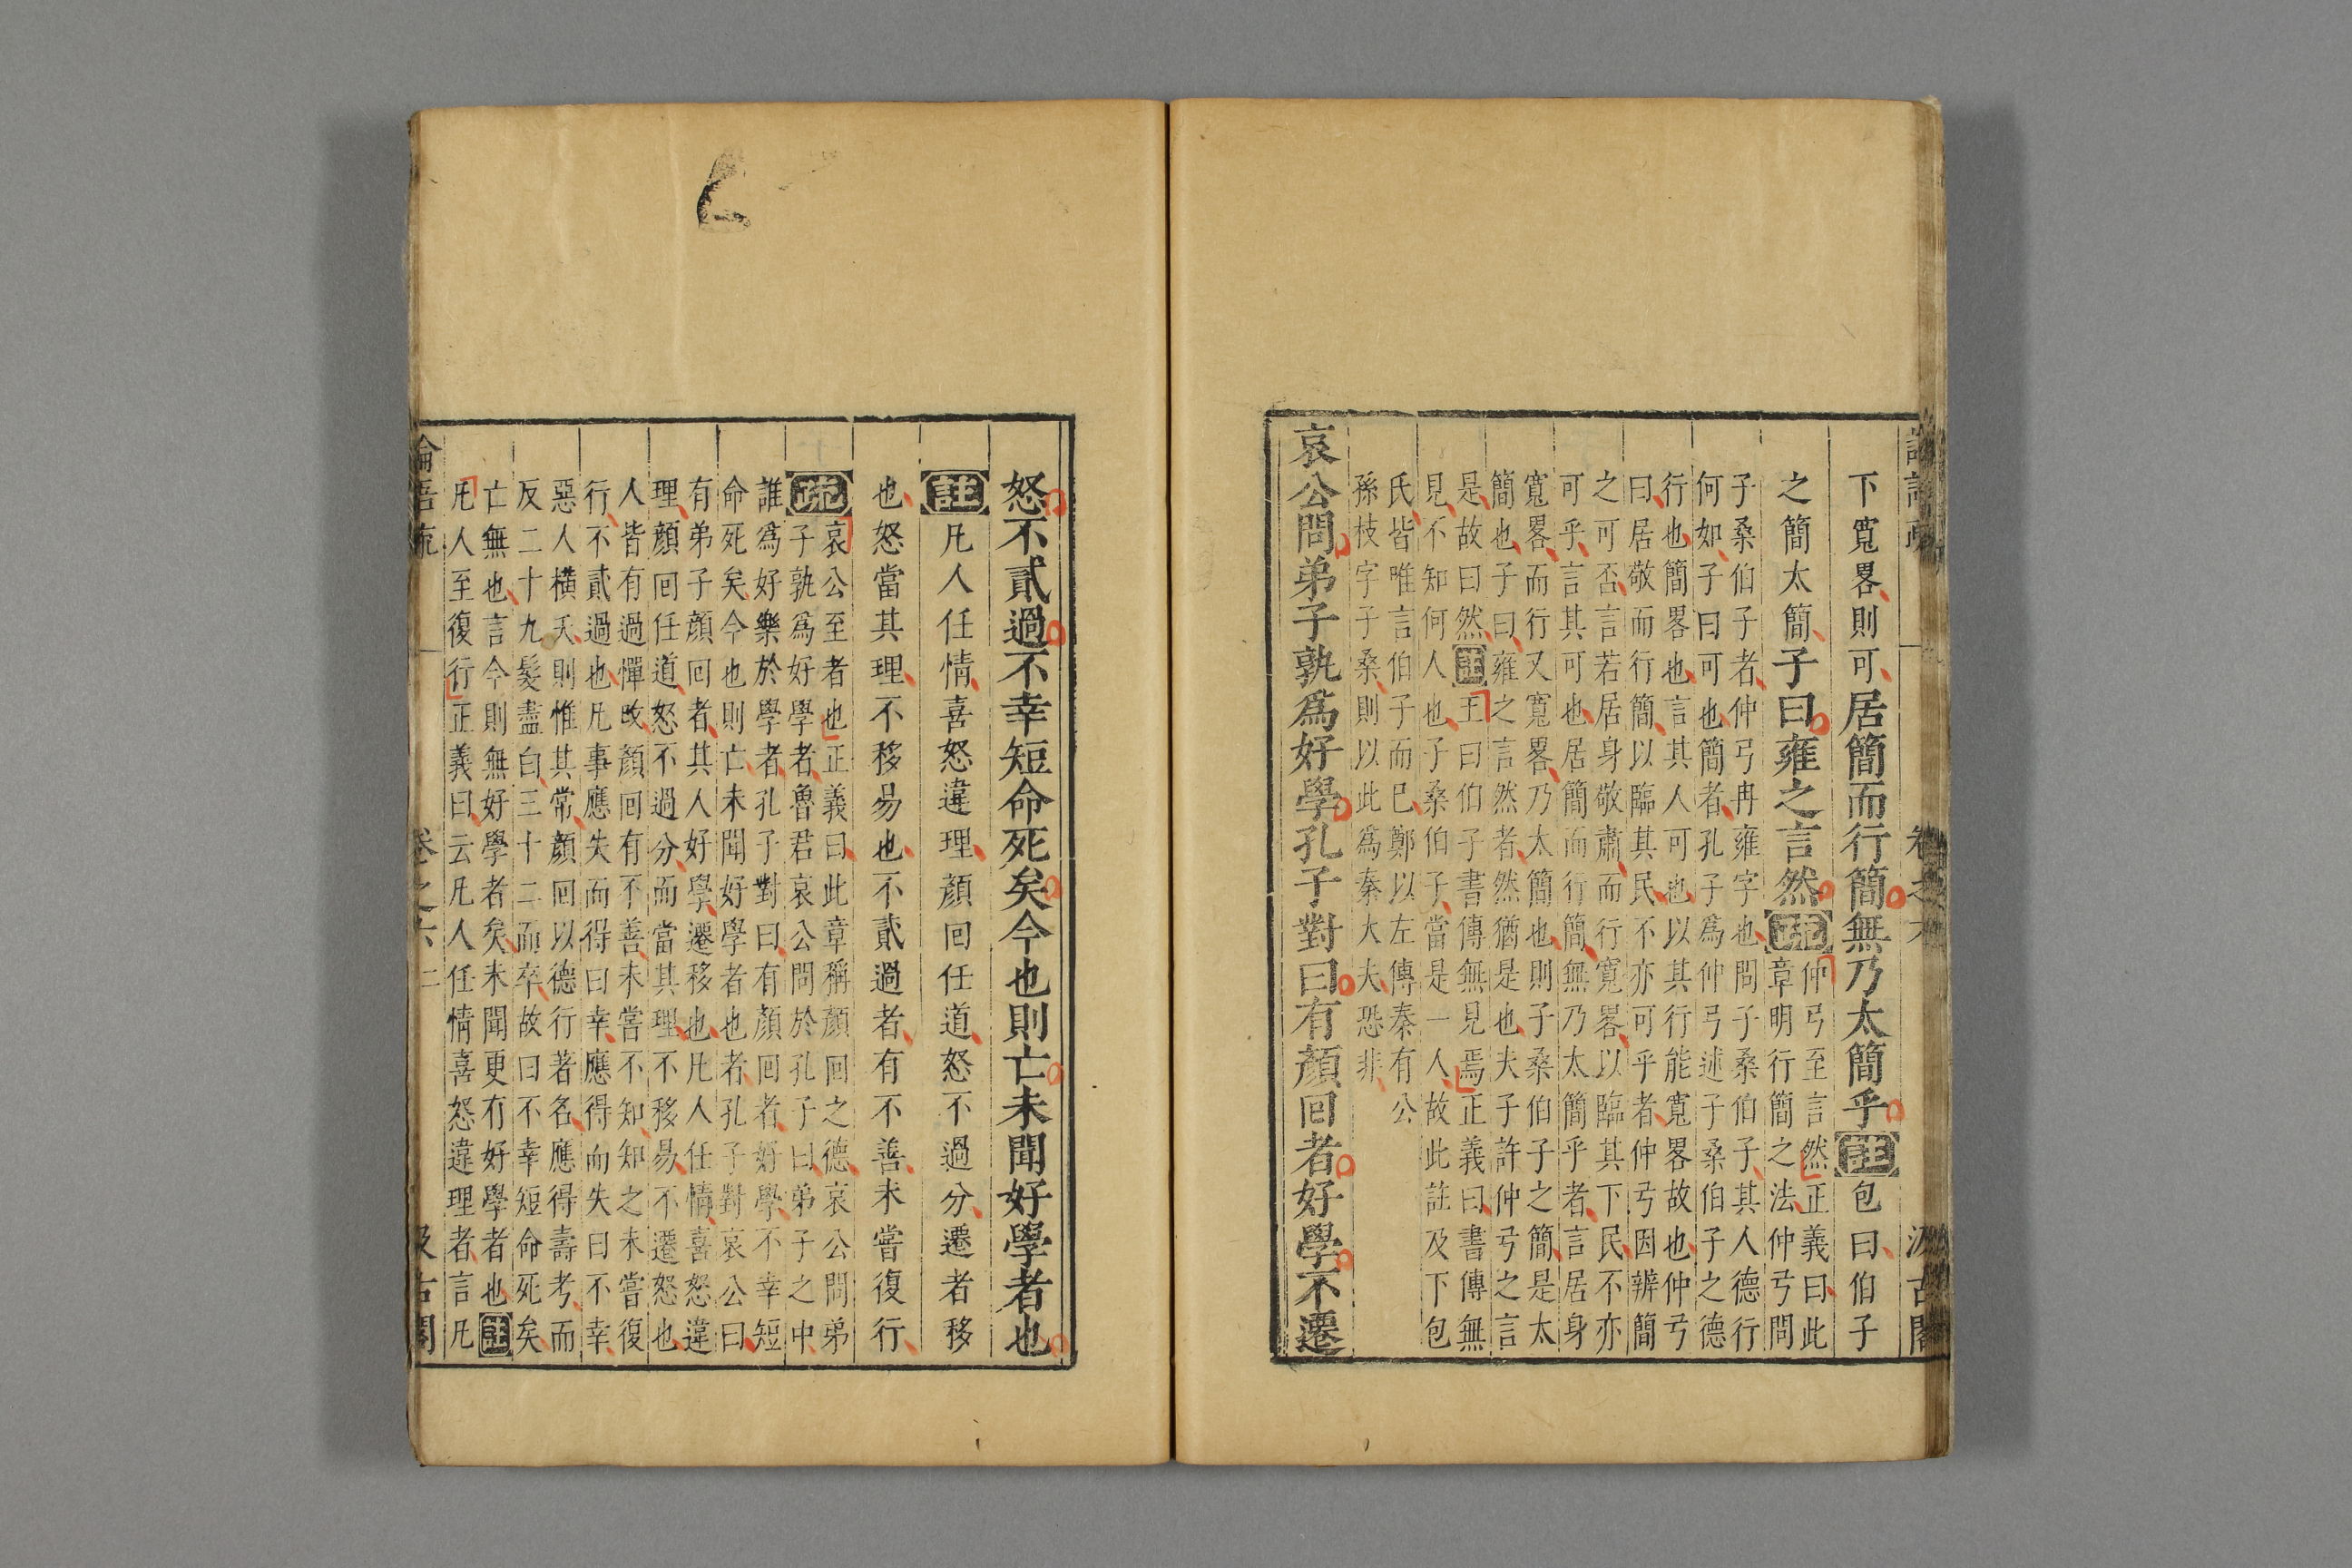 卷之六 汲古閣
下寬畧則可居簡而行簡無乃太簡乎註包曰伯子
之簡太簡子曰雍之言然疏
仲弓至言然正義曰此
章明行簡之法仲弓問
子桑伯子者仲弓冉雍字也問子桑伯子其人德行
何如子曰可也簡者孔子爲仲弓述子桑伯子之德
行也簡畧也言其人可也以其行能寬畧故也仲弓
曰居敬而行簡以臨其民不亦可乎者仲弓因辨簡
之可否言若居身敬肅而行寬畧以臨其下民不亦
可乎言其可也居簡而行簡無乃太簡乎者言居身
寬畧而行又寬畧乃太簡也則子桑伯子之簡是太
簡也子曰雍之言然者然猶是也夫子許仲弓之言
是故曰然註王曰伯子書傳無見焉正義曰書傳無
見不知何人也子桑伯子當是一人故此註及下包
氏皆唯言伯子而已鄭以左傳秦有公
孫枝字子桑則以此爲秦大夫恐非
哀公問弟子孰爲好學孔子對曰有顏回者好學不遷
怒不貳過不幸短命死矣今也則亡未聞好學者也
註凡人任情喜怒違理顏回任道怒不過分遷者移
也怒當其理不移易也不貳過者有不善未嘗復行
疏
哀公至者也正義曰此章稱顏回之德哀公問弟
子孰爲好學者魯君哀公問於孔子曰弟子之中
誰爲好樂於學者孔子對曰有顏回者好學不幸短
命死矣今也則亡未聞好學者也者孔子對哀公曰
有弟子顏回者其人好學遷移也凡人任情喜怒違
理顏回任道怒不過分而當其理不移易不遷怒也
人皆有過憚改顏回有不善未嘗不知知之未嘗復
行不貳過也凡事應失而得曰幸應得而失曰不幸
惡人橫夭則惟其常顏回以德行著名應得壽考而
反二十九髮盡白三十二而卒故曰不幸短命死矣
亡無也言今則無好學者矣未聞更有好學者也註
凡人至復行正義曰云凡人任情喜怒違理者言凡
論語疏 卷之六 二 汲古閣